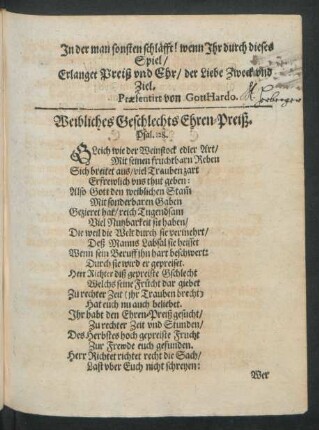 In der man sonsten schläfft! wenn Ihr durch dieses
Spiel/
Erlanget Preiß vnd Ehr/ der Liebe Zweck vnd
Ziel.
Præsentirt von GottHardo.
Weibliches Geschlechts Ehren-Preiß.
Psal. 128.
GLeich wie der Weinstock edler Art/
Mit seinen fruchtbarn Reben
Sich breitet aus/ viel Trauben zart
Erfrewlich vns thut geben:
Also Gott den weiblichen Stam̃
Mit sonderbaren Gaben
Gezieret hat/ reich Tugendsam
Viel Nutzbarkeit zu haben/
Die weil die Welt durch sie vermehrt/
Deß Manns Labsal sie heisset
Wenn sein Beruff jhn hart beschwert:
Durch sie wird er gepreiset.
Herr Richter diß gepreiste Gschlecht
Welchs seine Frücht dar giebet
Zu rechter Zeit (jhr Trauben brecht)
Hat euch nu auch beliebet.
Ihr habt den Ehren-Preiß gesucht/
Zu rechter Zeit vnd Stunden/
Des Herbstes hoch gepreiste Frucht
Zur Frewde euch gefunden.
Herr Richter richtet recht die Sach/
Last vber Euch nicht schreyen:
Wer